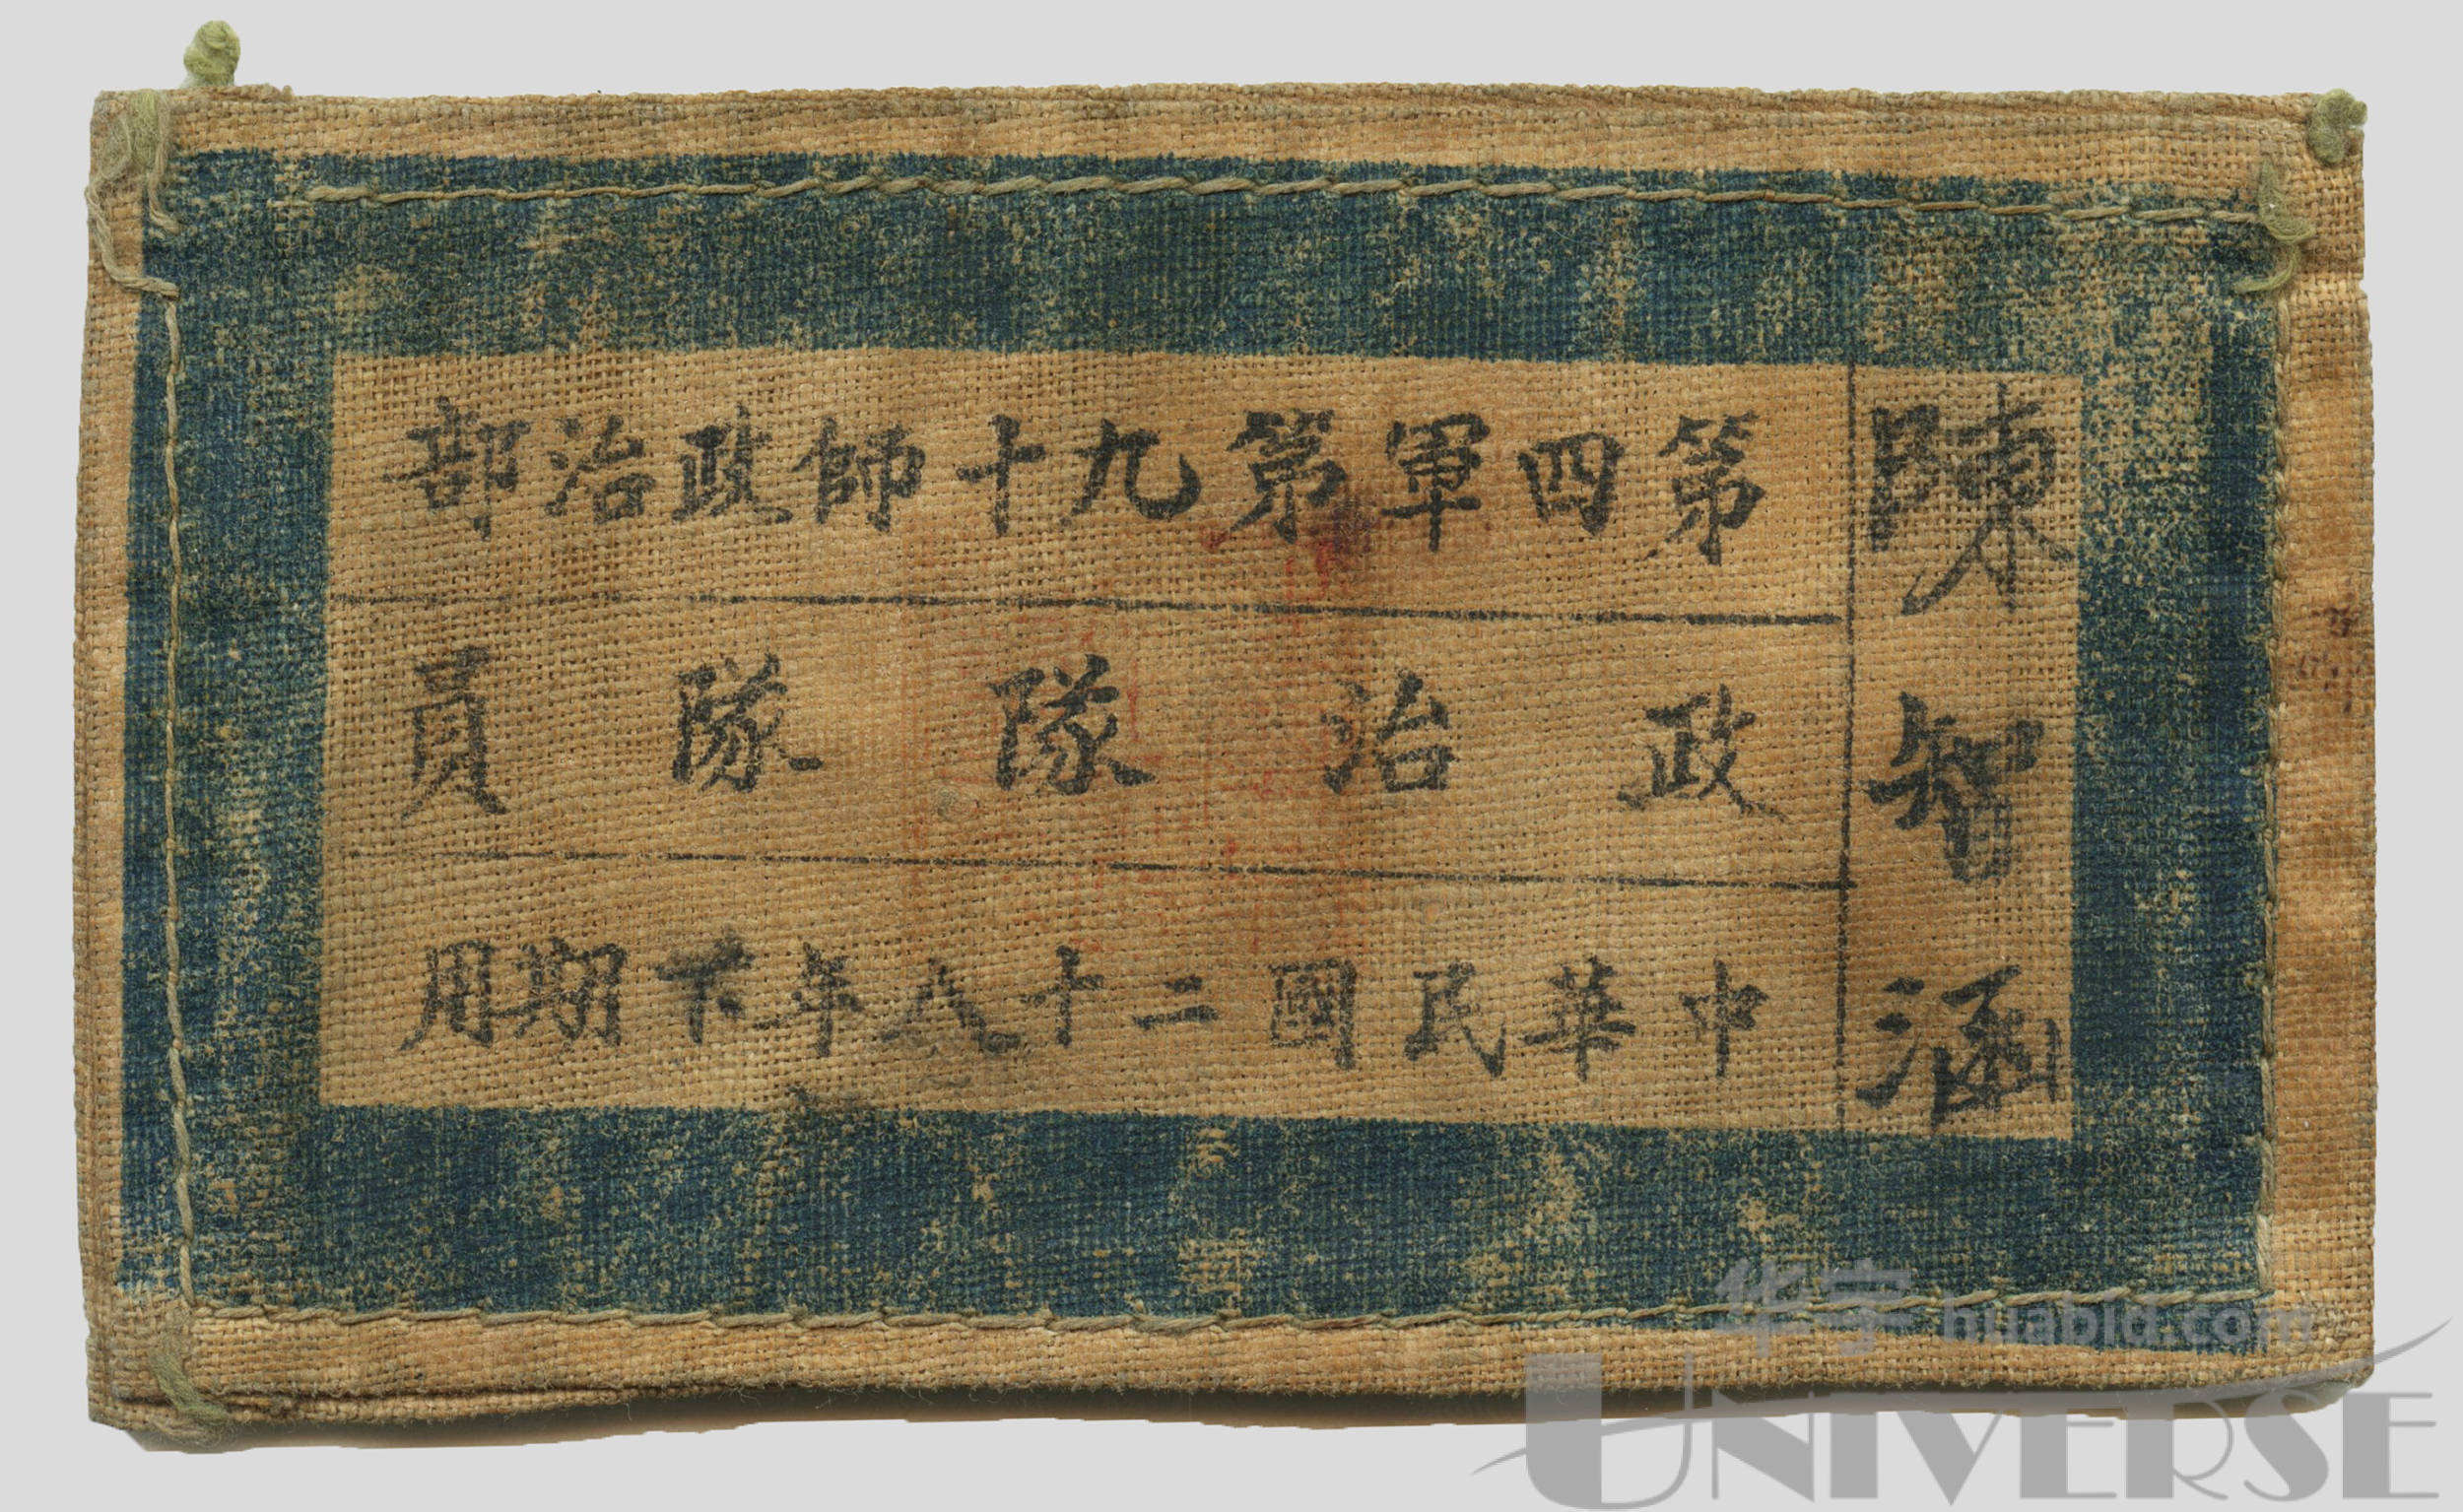 陳智涵
第四軍第九十師政治部
政治隊隊員
中華民國二十八年下期用
华宇 huabid.com
UNIVERSE